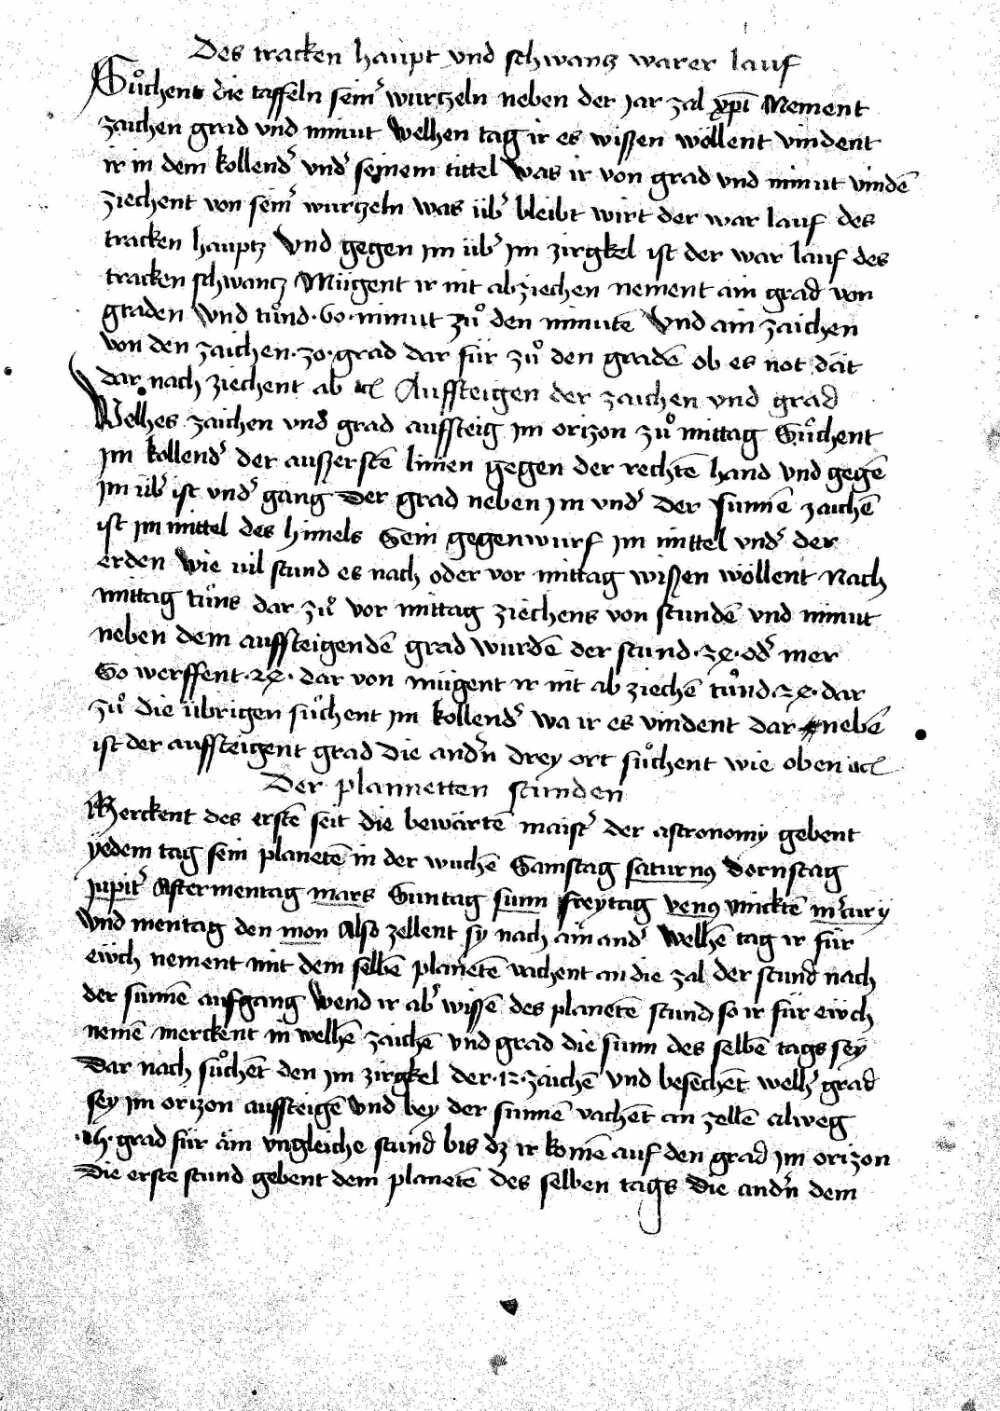 Des tracken haupt vnd schwantz warer lauf
Suͦchent die taffeln seinˀ wurtzeln neben der jar zal xp̄i Nement
zaichen grad vnd minut Welhen tag ir es wissen wöllent vindent
ir in dem kollendˀ vndˀ seinem tittel Was ir von grad vnd minut vindē
ziechent von seinˀ wurtzeln was übˀ bleibt wirt der war lauf des
tracken hauptz Vnd gegen im übˀ im zirgkel ist der war lauf des
tracken schwantz Mügent ir nit abziechen nement ain grad von
graden Vnd tuͦnd ·60· minut zuͦ den minutē Vnd ain zaichen
von den zaichen ·30· grad dar für zuͦ den gradē ob es not dät
dar nach ziechent ab etc Auffsteigen der zaichen vnd grad
Welhes zaichen vnd grad auffsteig im orizon zuͦ mittag Suͦchent
im kollendˀ der ausserstē linien gegen der rechtē hand vnd gegē
im übˀ ist vndˀ gang Der grad neben im vndˀ der sunnē zaichē
ist im mittel des himels Sein gegenwurf im mittel vndˀ der
erden Wie uil stund es nach oder vor mittag wissen wöllent Nach
mittag tuͦns dar zuͦ vor mittag ziechens von stundē vnd minut
neben dem auffsteigendē grad wurdē der stund ·24· odˀ mer
So werffent ·24· dar von mügent ir nit ab ziechē tuͦnd 24· dar
zuͦ die übrigen suͦchent im kollendˀ wa ir es vindent dar nebē
ist der auffsteigent grad die andˀn drey ort suͦchent wie oben etc
Der plannetten stunden
Merckent des erstē seit die bewärtē maistˀ der astronomy gebent
yedem tag sein planetē in der wuchē Samstag saturnus Dornstag
jupitˀ Aftermentag mars Suntag sunn freytag venus Micktē mˀcury
Vnd mentag den mon Also zellent sy nach ain andˀ Welhē tag ir für
eẅch nement mit dem selbē planetē vachent an die zal der stund nach
der sunnē aufgang Wend ir abˀ wissē des planetē stund so ir für eẅch
nemē merckent in welhē zaichē vnd grad die sunn des selbē tags sey
Dar nach suͦchēt den im zirgkel der ·12· zaichē Vnd besechēt welhˀ grad
sey im orizon auffsteigē Vnd bey der sunnē vachēt an zellē alweg
·15· grad für ain vngleiche stund bis dz ir komē auf den grad im orizon
Die erste stund gebent dem planetē des selben tags Die andˀn dem